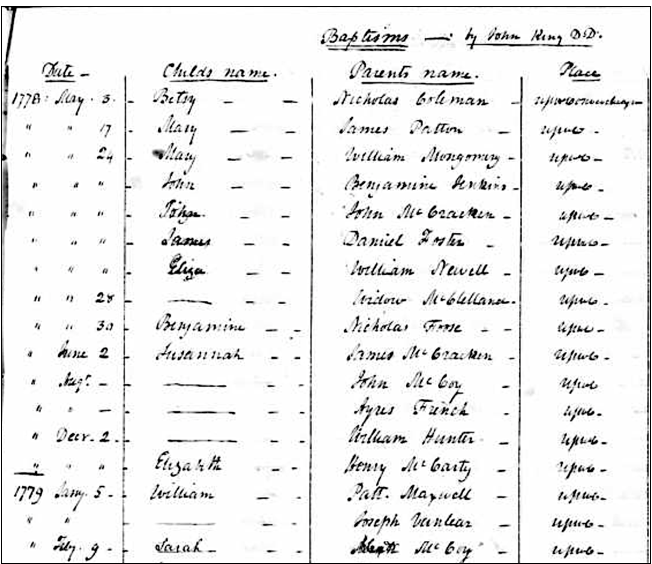 Baptisms — by John King D.D.
Date — Childs name. Parents name. Place
1778 May 3 - Betsy — — Nicholas Coleman -
" " 17 - Mary — — James Patton - upwc -
" " 24 - Mary — — William Mongomery - upwc -
" " " - John — — Benjamine Jenkins - upwc -
" " " - John — — John McCracken - upwc -
" " " - James — — Daniel Foster - upwc -
" " " Eliza — — William Newell - upwc -
" " 28 - —— — — Widow McClelland - upwc -
" " 30 - Benjamine — — Nicholas - - upwc -
" June 2 - Susannah — — James McCracken - upwc -
" Augt. — - —— — — John McCoy - upwc
" " — - —— — — Ayres French - upwc -
" Decr. 2 - —— — — William Hunter - upwc -
" " " - Elizabeth — — Henry McCarty - upwc -
1779 Jany. 5 - - William — — Patt. Maxwell - upwc -
" " —— — — Joseph Vanlear - upwc -
" Feby. 9 - - Sarah — — McCoy - upwc -